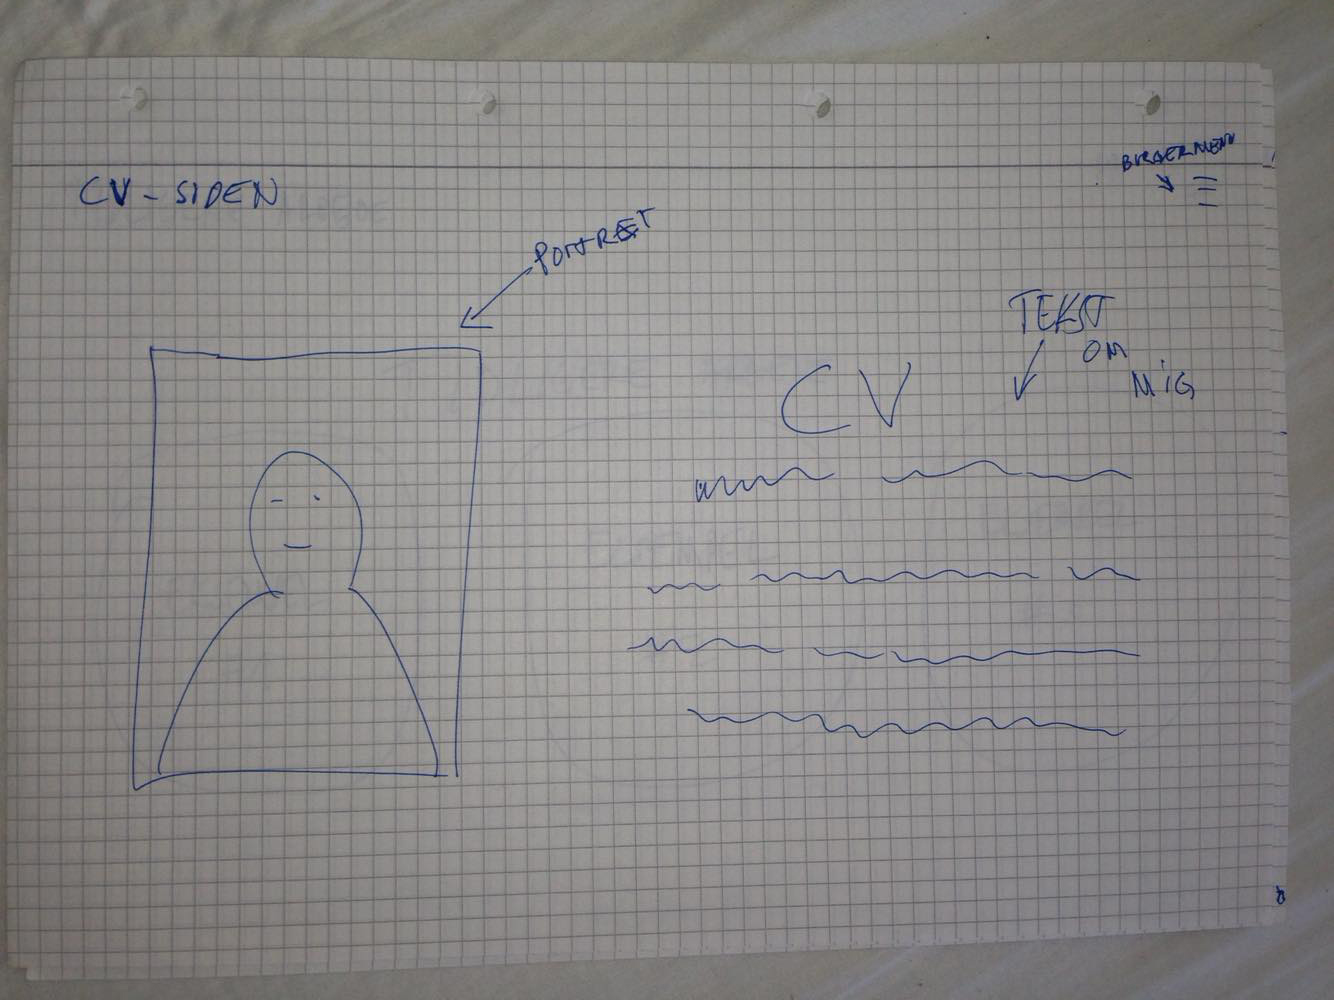 CV - SIDEN
BURGERMENU
PORTRÆT
TEKST
OM
MIG
CV